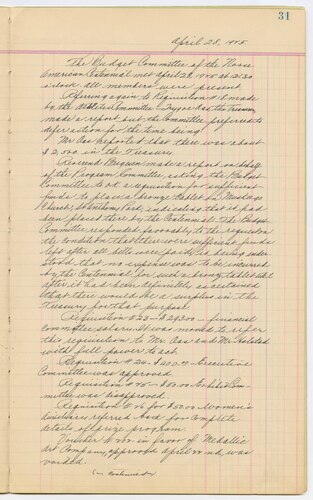 31
April 28, 1925
The Budget Committee of the Norse
American Centennial met April 28, 1925 at 2:30
o'clock all members were present.
Referring again to Requisition # made
by the Committee the Treasurer
made a report but the Committee preferred to
defer action for the time being.
Mr. Aas reported that there was about
$2,000 in the Treasury.
Reverend made a report on behalf
of the Program Committee, asking the Budget
Committee to o.k. a requisition for sufficient
funds to place a bronze tablet in
Church, St. Anthony Park, indicating that it had
been placed there by the Centennial. The Budget
Committee responded favorably to the request on
the condition that there were sufficient funds
left after all bills were paid, it being under-
stood that no expense was to be incurred
by the Centennial for such a bronze tablet until
after it had been definitely ascertained
that there would be a surplus in the
Treasury for that purpose.
Requisition #23 - $ - financial
committee salaries. It was moved to refer
this requisition to Mr. Aas and Mr. Halstad
with full power to act.
Requisition #24 - $400.00 - Executive
Committee was approved.
Requisition #25 - $50.00 Exhibit Com-
mittee was disapproved.
Requisition #26 for $50.00 Women's
Auxiliary, referred back for complete
details of prize program.
Voucher # in favor of Medallic
Art Company, approved April 22nd, was
voided.